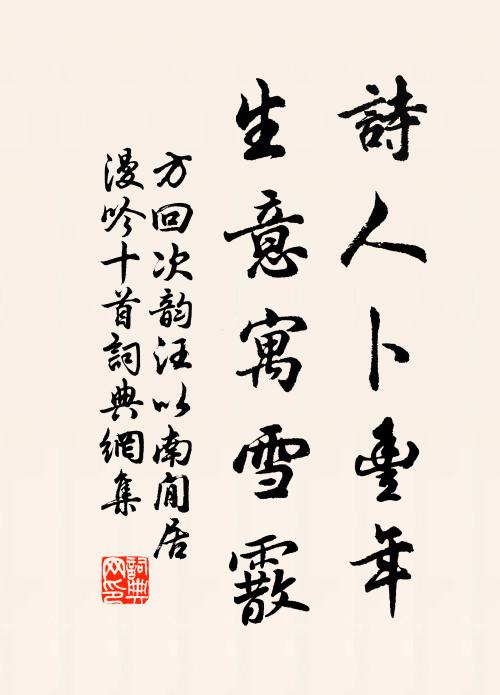 詩人卜豐年
生意寓雪霰
方回次韵汪以南閒居
漫吟十首詞典網集
詞典
网印